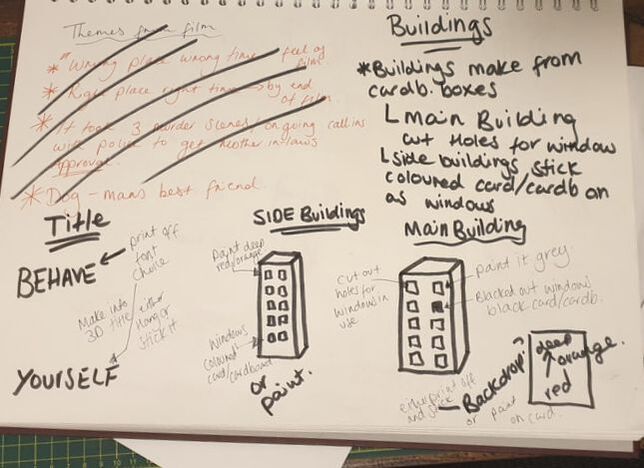 Themes from film
* "Wrong place wrong time feel of
film
* Right place right time → by end
of film.
* It took 3 murder scenes/on going call ins
with police to get mother in-laws
approval.
* Dog - mans best friend.
Buildings
*Buildings make from
cardb. boxes
Main Building
cut Holes for window
side buildings stick
coloured card/cardb on
as windows
Title
BEHAVE
print off
font
choice
Make into
3D title
either
Hang or
stick it
YOURSELF
SIDE Buildings
Paint deep
red/orange
Windows
coloured
card/cardboard
or
paint.
Main Building
cut out
holes for
windows in
use
paint it grey.
Blacked out windows
black card/cardb.
either print off
and stick
Backdrop
or paint
on card.
deep
orange.
red